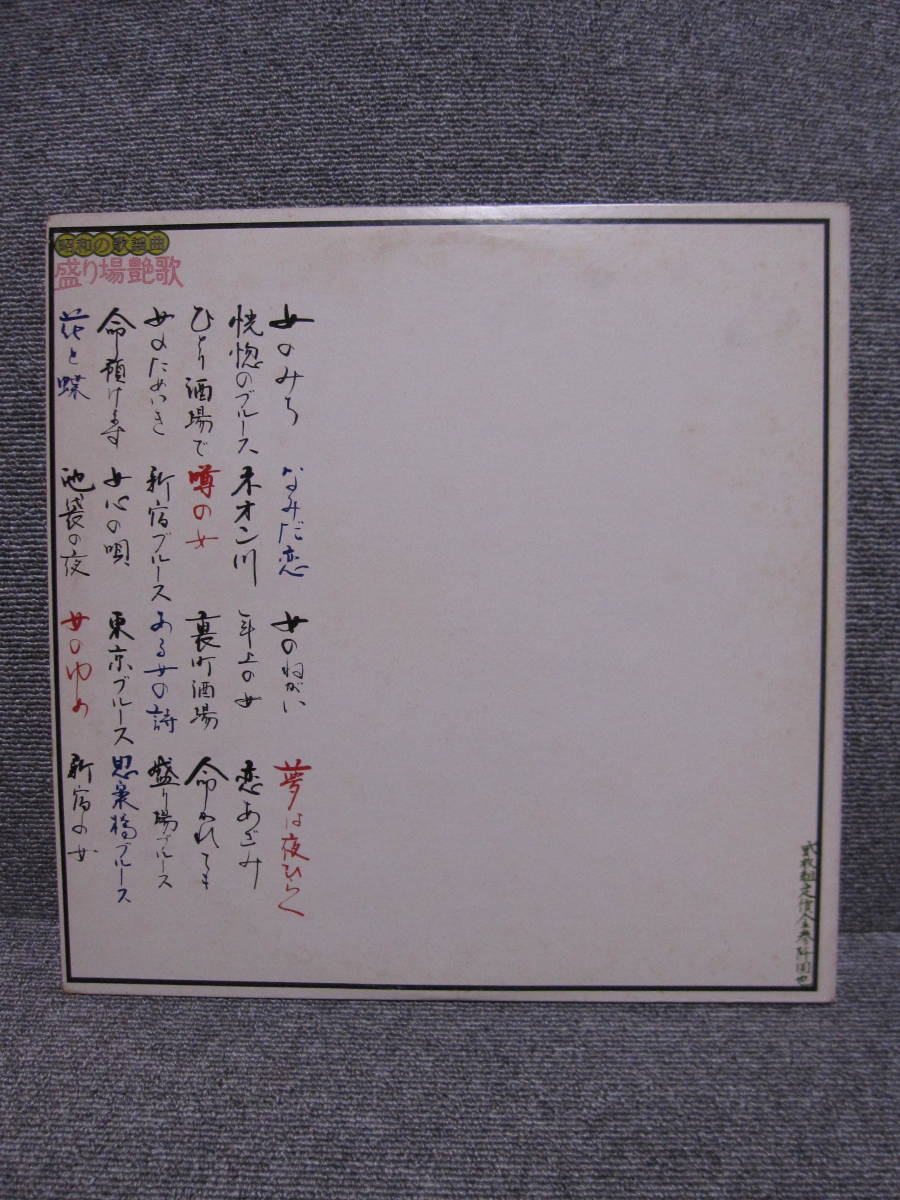 昭和の歌謡曲
盛り場艶歌
女のみち
恍惚のブルース
ひとり酒場で
女のためいき
命預けます
花と蝶
なみだ恋
ネオン川
噂の女
新宿ブルース
女心の唄
池袋の夜
女のねがい
年上の女
裏町酒場
ある女の詩
東京ブルース
女のゆめ
夢は夜ひらく
恋あざみ
命かれても
盛り場ブルース
思案橋ブルース
新宿の女
弐枚組定價金参阡圓也